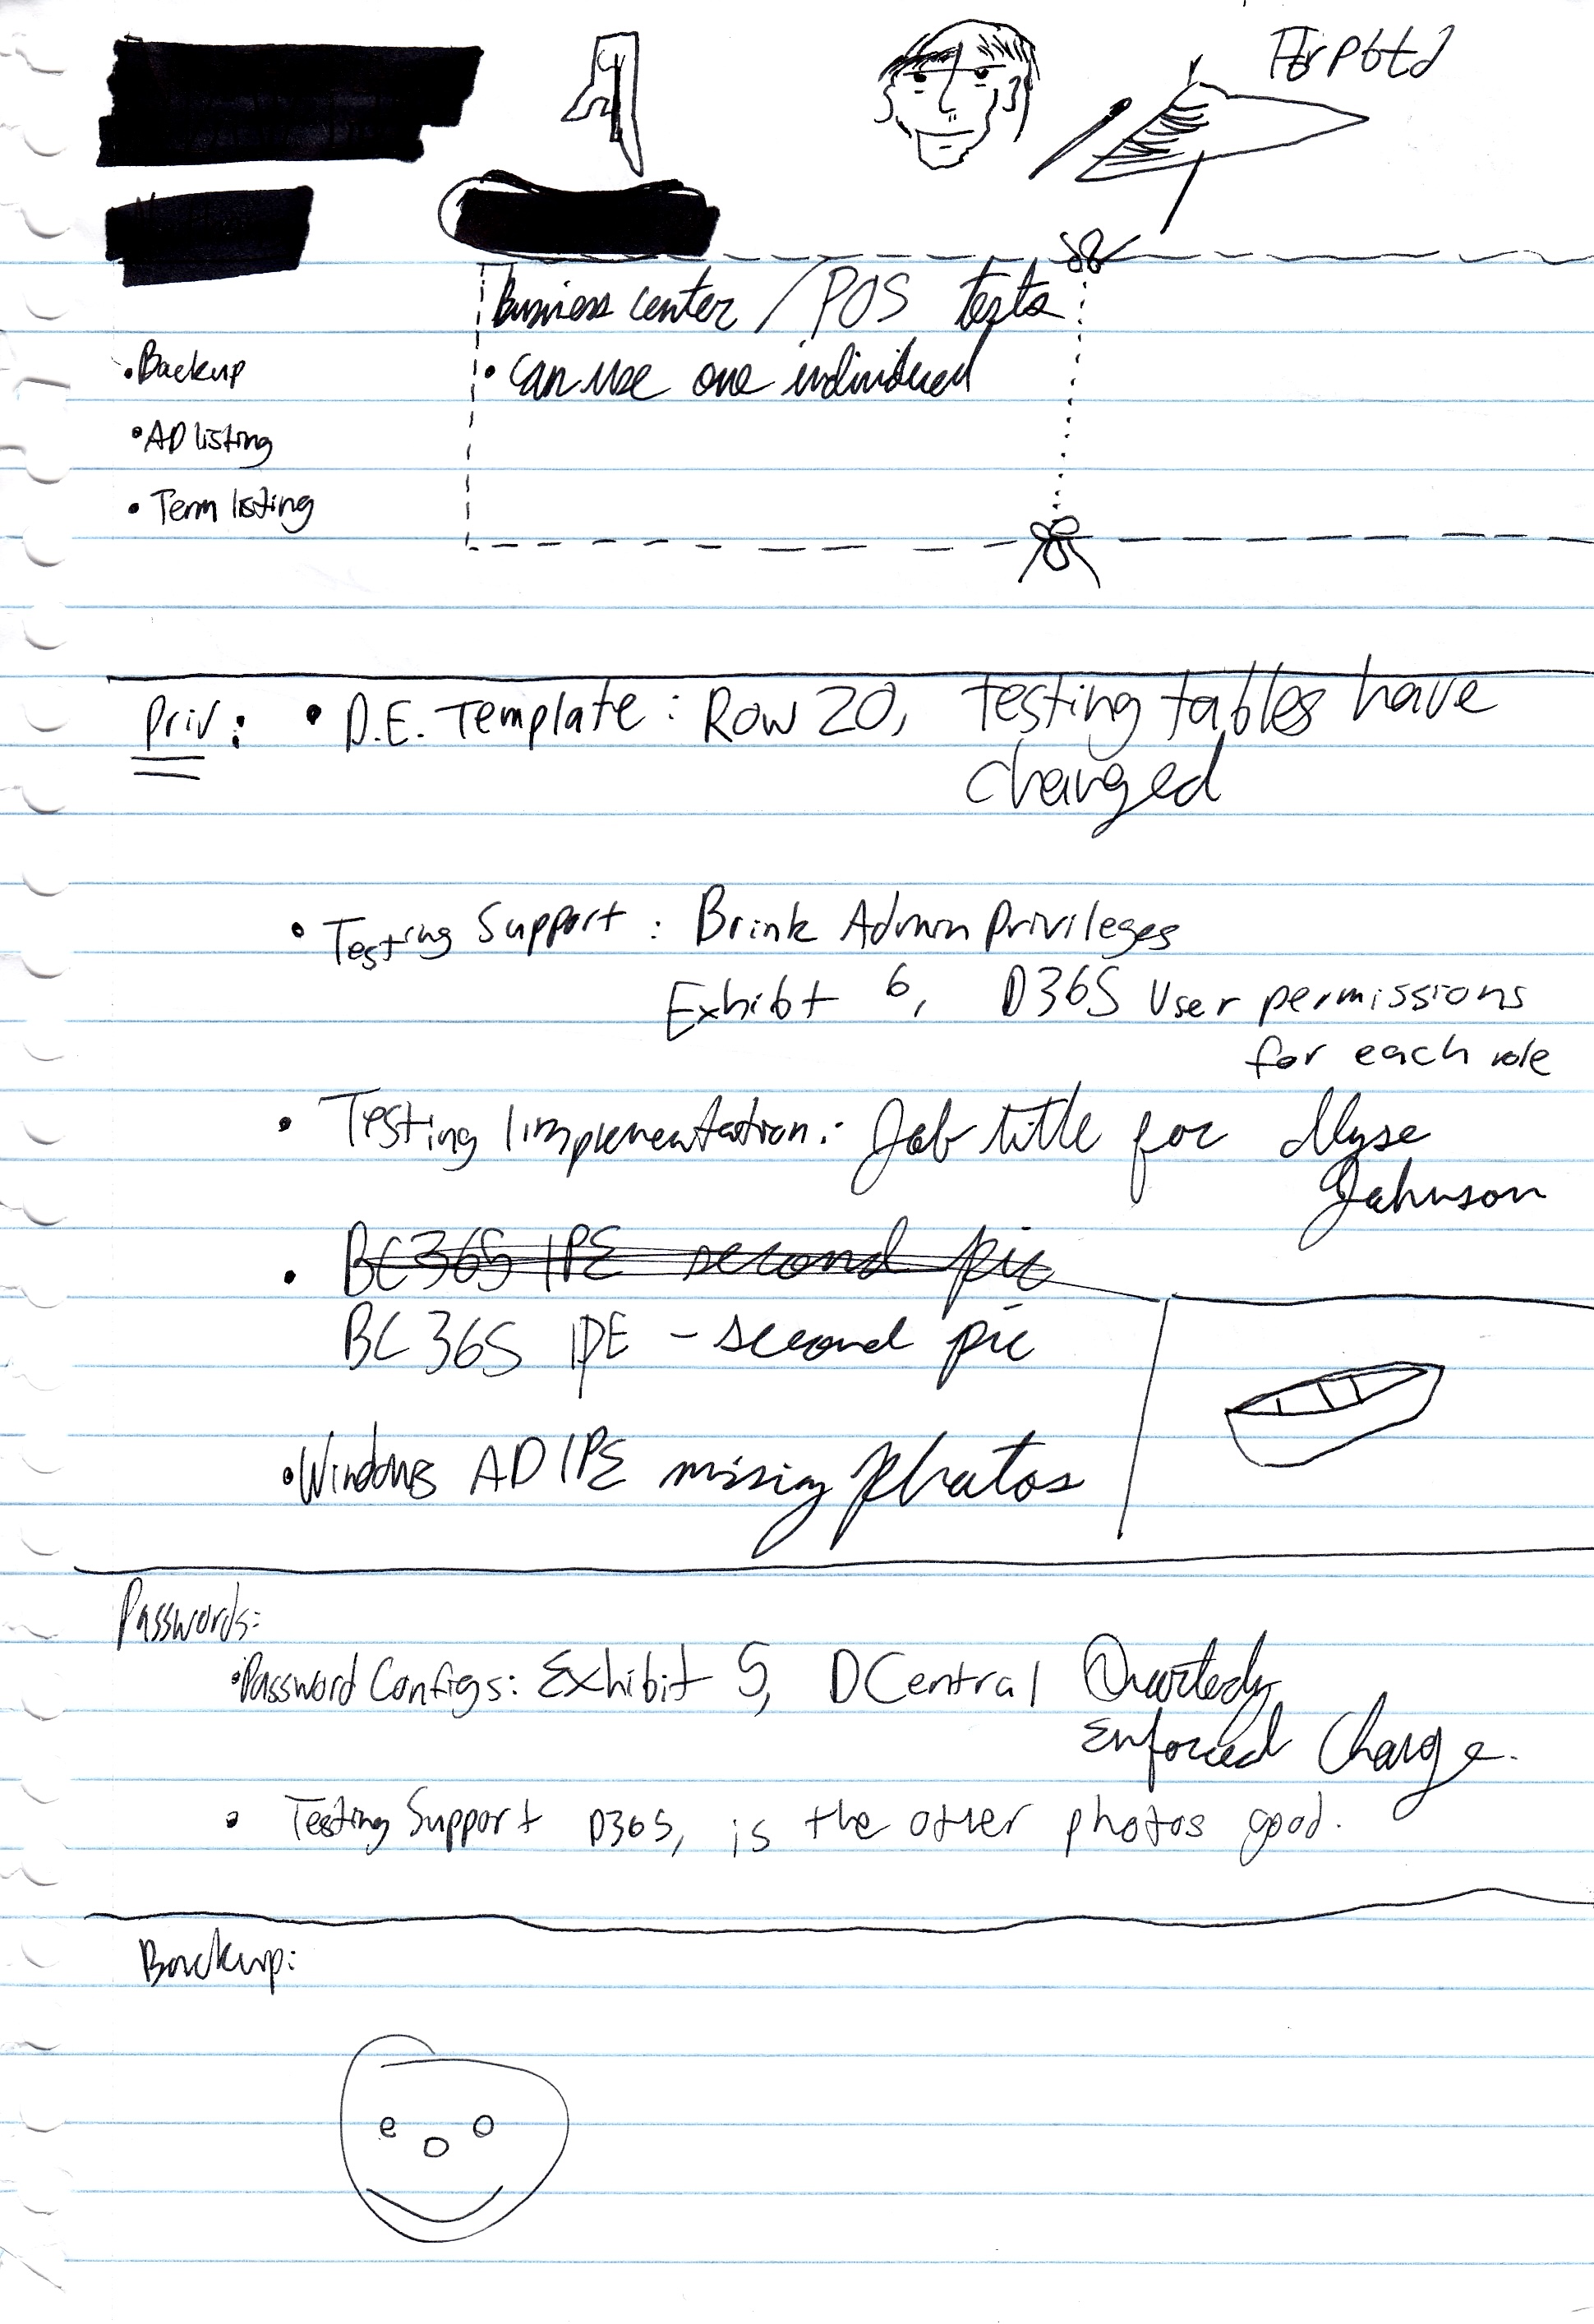 Business center / POS tests
• Backup
• can use one individual
• AD listing
• Term listing
Priv: • D.E. Template: Row 20, testing tables have
changed
• Testing Support: Brink Admin Privileges
Exhibt 6, D365 User permissions
for each role
• Testing Implementation: Job title for
Johnson
• BC365 IPE second pic
BC365 IPE - second pic
• Windows AD IPE missing photos
Passwords:
• Password Configs: Exhibit 5, DCentral Quarterly
Enforced Change.
• Testing Support D365, is the other photos good.
Backup: